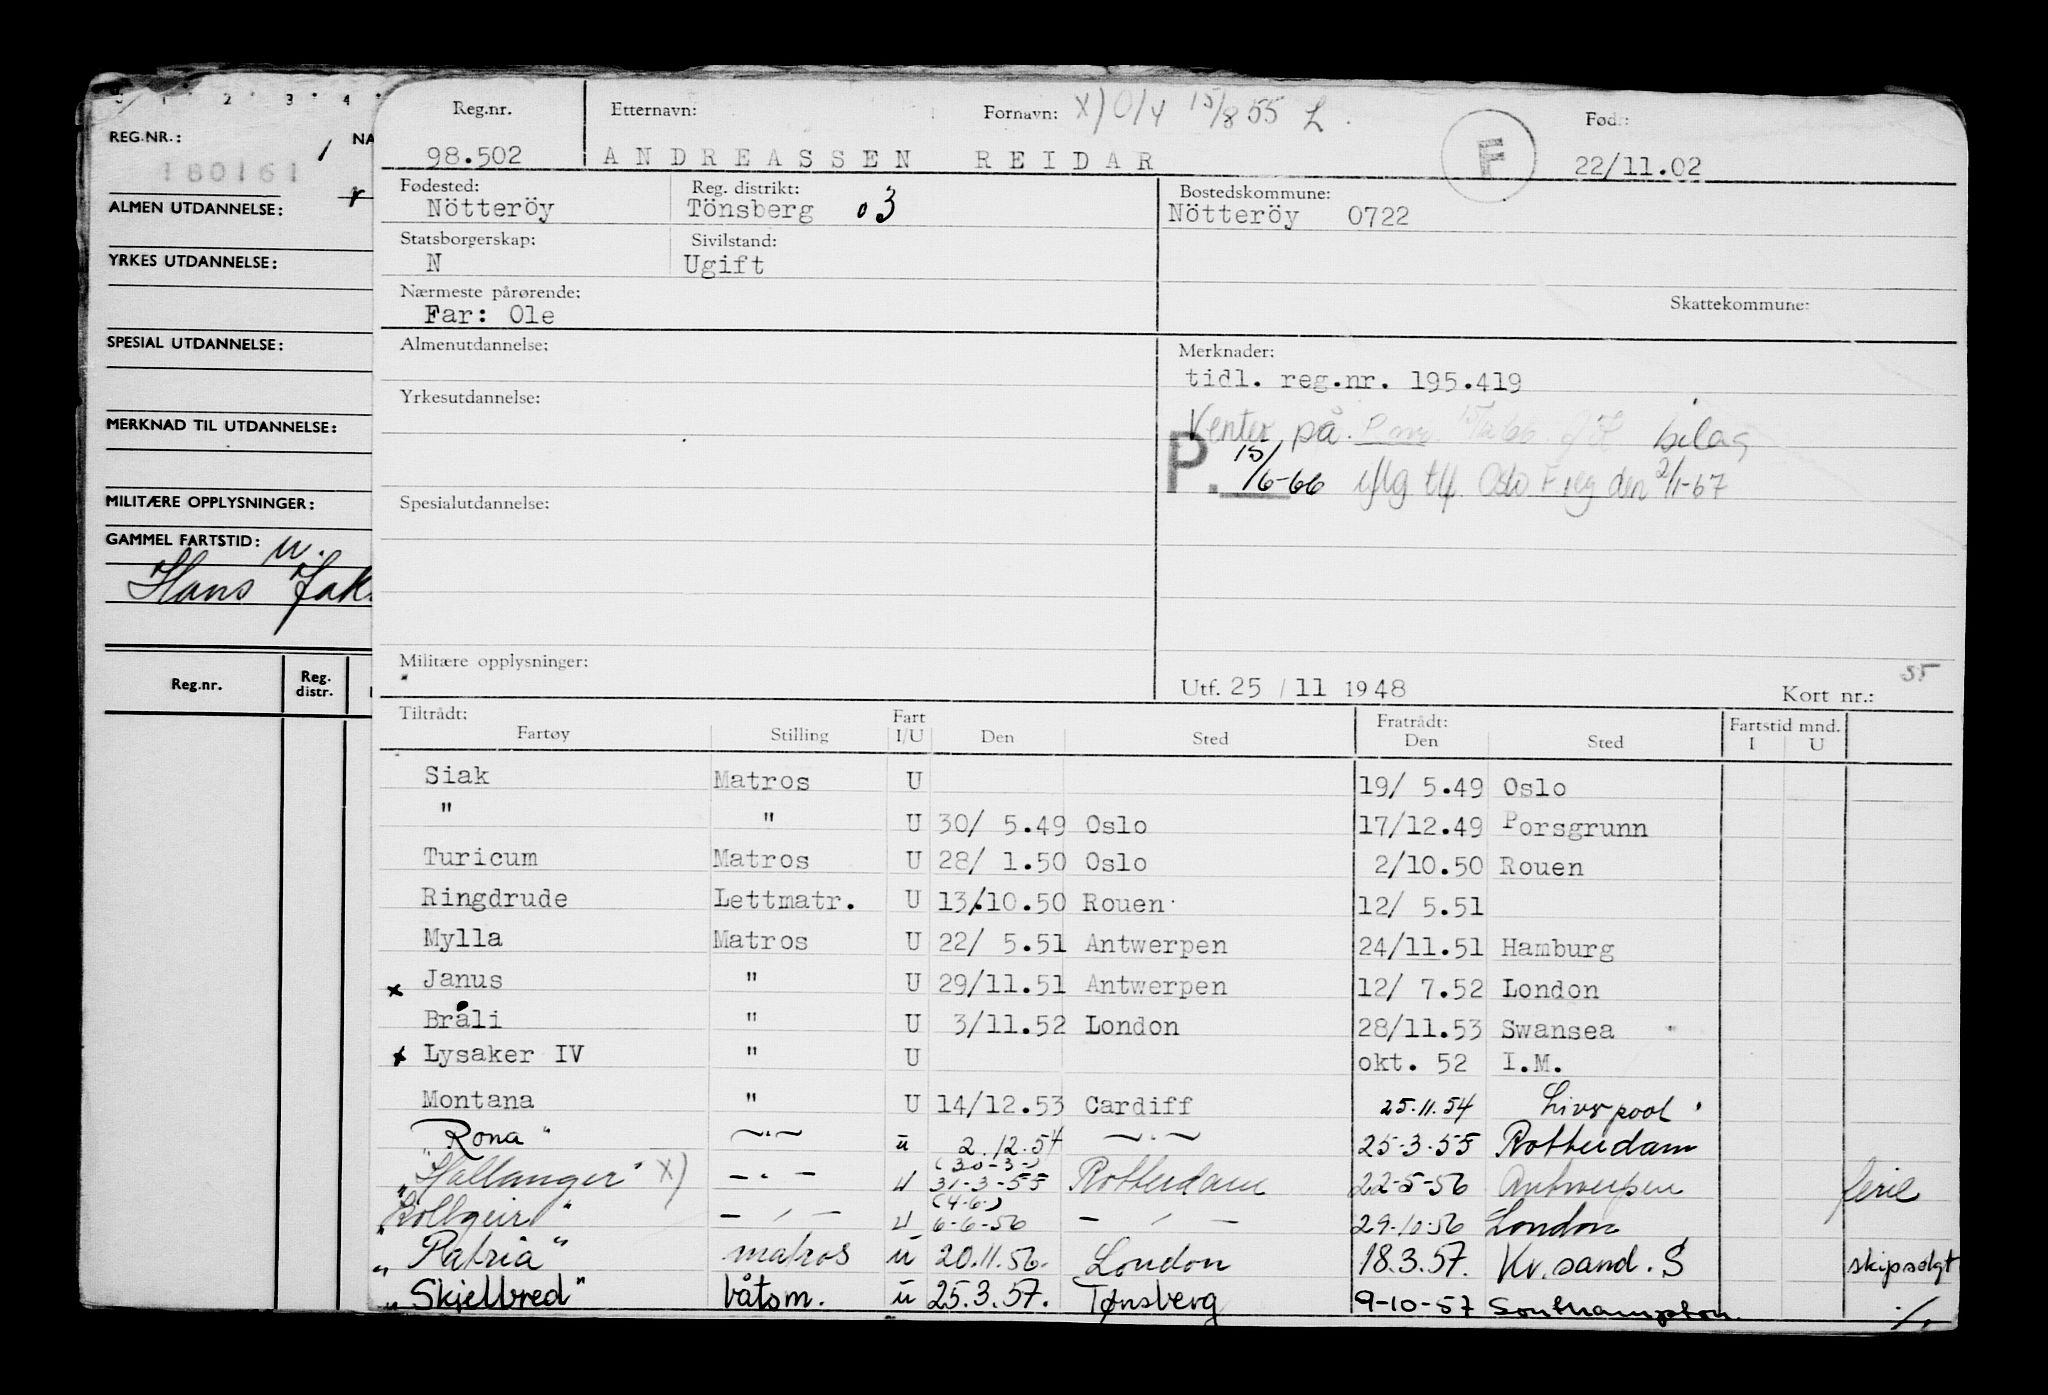 0 1 2 3 4
REG.NR.: NA
180161
ALMEN UTDANNELSE:
YRKES UTDANNELSE:
SPESIAL UTDANNELSE:
MERKNAD TIL UTDANNELSE:
MILITÆRE OPPLYSNINGER:
GAMMEL FARTSTID: u.
Hans Jak
Reg.nr. Reg. distr.
Reg.nr. Etternavn: Fornavn: x) O/4 15/8 55 L. Født:
98.502 ANDREASSEN REIDAR F 22/11.02
Fødested: Reg. distrikt: Bostedskommune:
Nötteröy Tönsberg 03 Nötteröy 0722
Statsborgerskap: Sivilstand:
N Ugift
Nærmeste pårørende: Skattekommune:
Far: Ole
Almenutdannelse: Merknader:
tidl. reg.nr. 195.419
Yrkesutdannelse:
Venter på bilag
P. 15/6-66 iflg tlf. Oslo F.reg den 2/1-67
Spesialutdannelse:
Militære opplysninger:
Utf. 25 / 11 1948 Kort nr.: 55
Tiltrådt: Fart Fratrådt: Fartstid mnd.
Fartøy Stilling I/U Den Sted Den Sted I U
Siak Matros U 19/ 5.49 Oslo
" " U 30/ 5.49 Oslo 17/12.49 Porsgrunn
Turicum Matros U 28/ 1.50 Oslo 2/10.50 Rouen
Ringdrude Lettmatr. U 13/10.50 Rouen 12/ 5.51
Mylla Matros U 22/ 5.51 Antwerpen 24/11.51 Hamburg
x Janus " U 29/11.51 Antwerpen 12/ 7.52 London
Bråli " U 3/11.52 London 28/11.53 Swansea
x Lysaker IV " U okt. 52 I.M.
Montana " U 14/12.53 Cardiff 25.11.54 Liverpool
Rona" —"— u 2.12.54 —"— 25-3-55 Rotterdam
(30-3-)
"Hallanger" x) —"— u 31-3-55 Rotterdam 22-5-56 Antwerpen ferie
(4-6-)
"Kollgeir" —"— u 6-6-56 —"— 29-10-56 London
"Patria" matros u 20.11.56. London 18.3.57. Kr.sand.S skipsolgt
"Skjelbred" båtsm. u 25.3.57. Tønsberg 9-10-57 Southampton. ./.